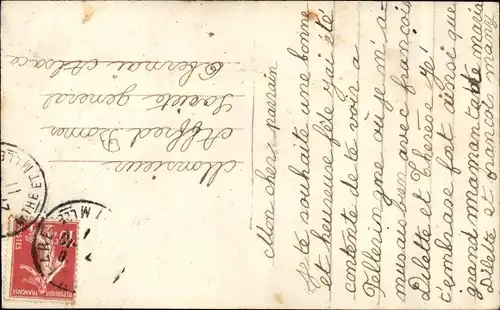 Mon cher parrain
Je te souhaite une bonne
et heureuse fête j'ai été
contente de te voir a
Pellerin ou je m'a
musais bien avec françois
Dilette et Thérèse Je
t'embrase fort ainsi que
grand maman tante maria
Dilette et françois nany
Monsieur
Alfred Bomer
Société general
Obernai Alsace
RÉPUBLIQUE FRANÇAISE
POSTES
10